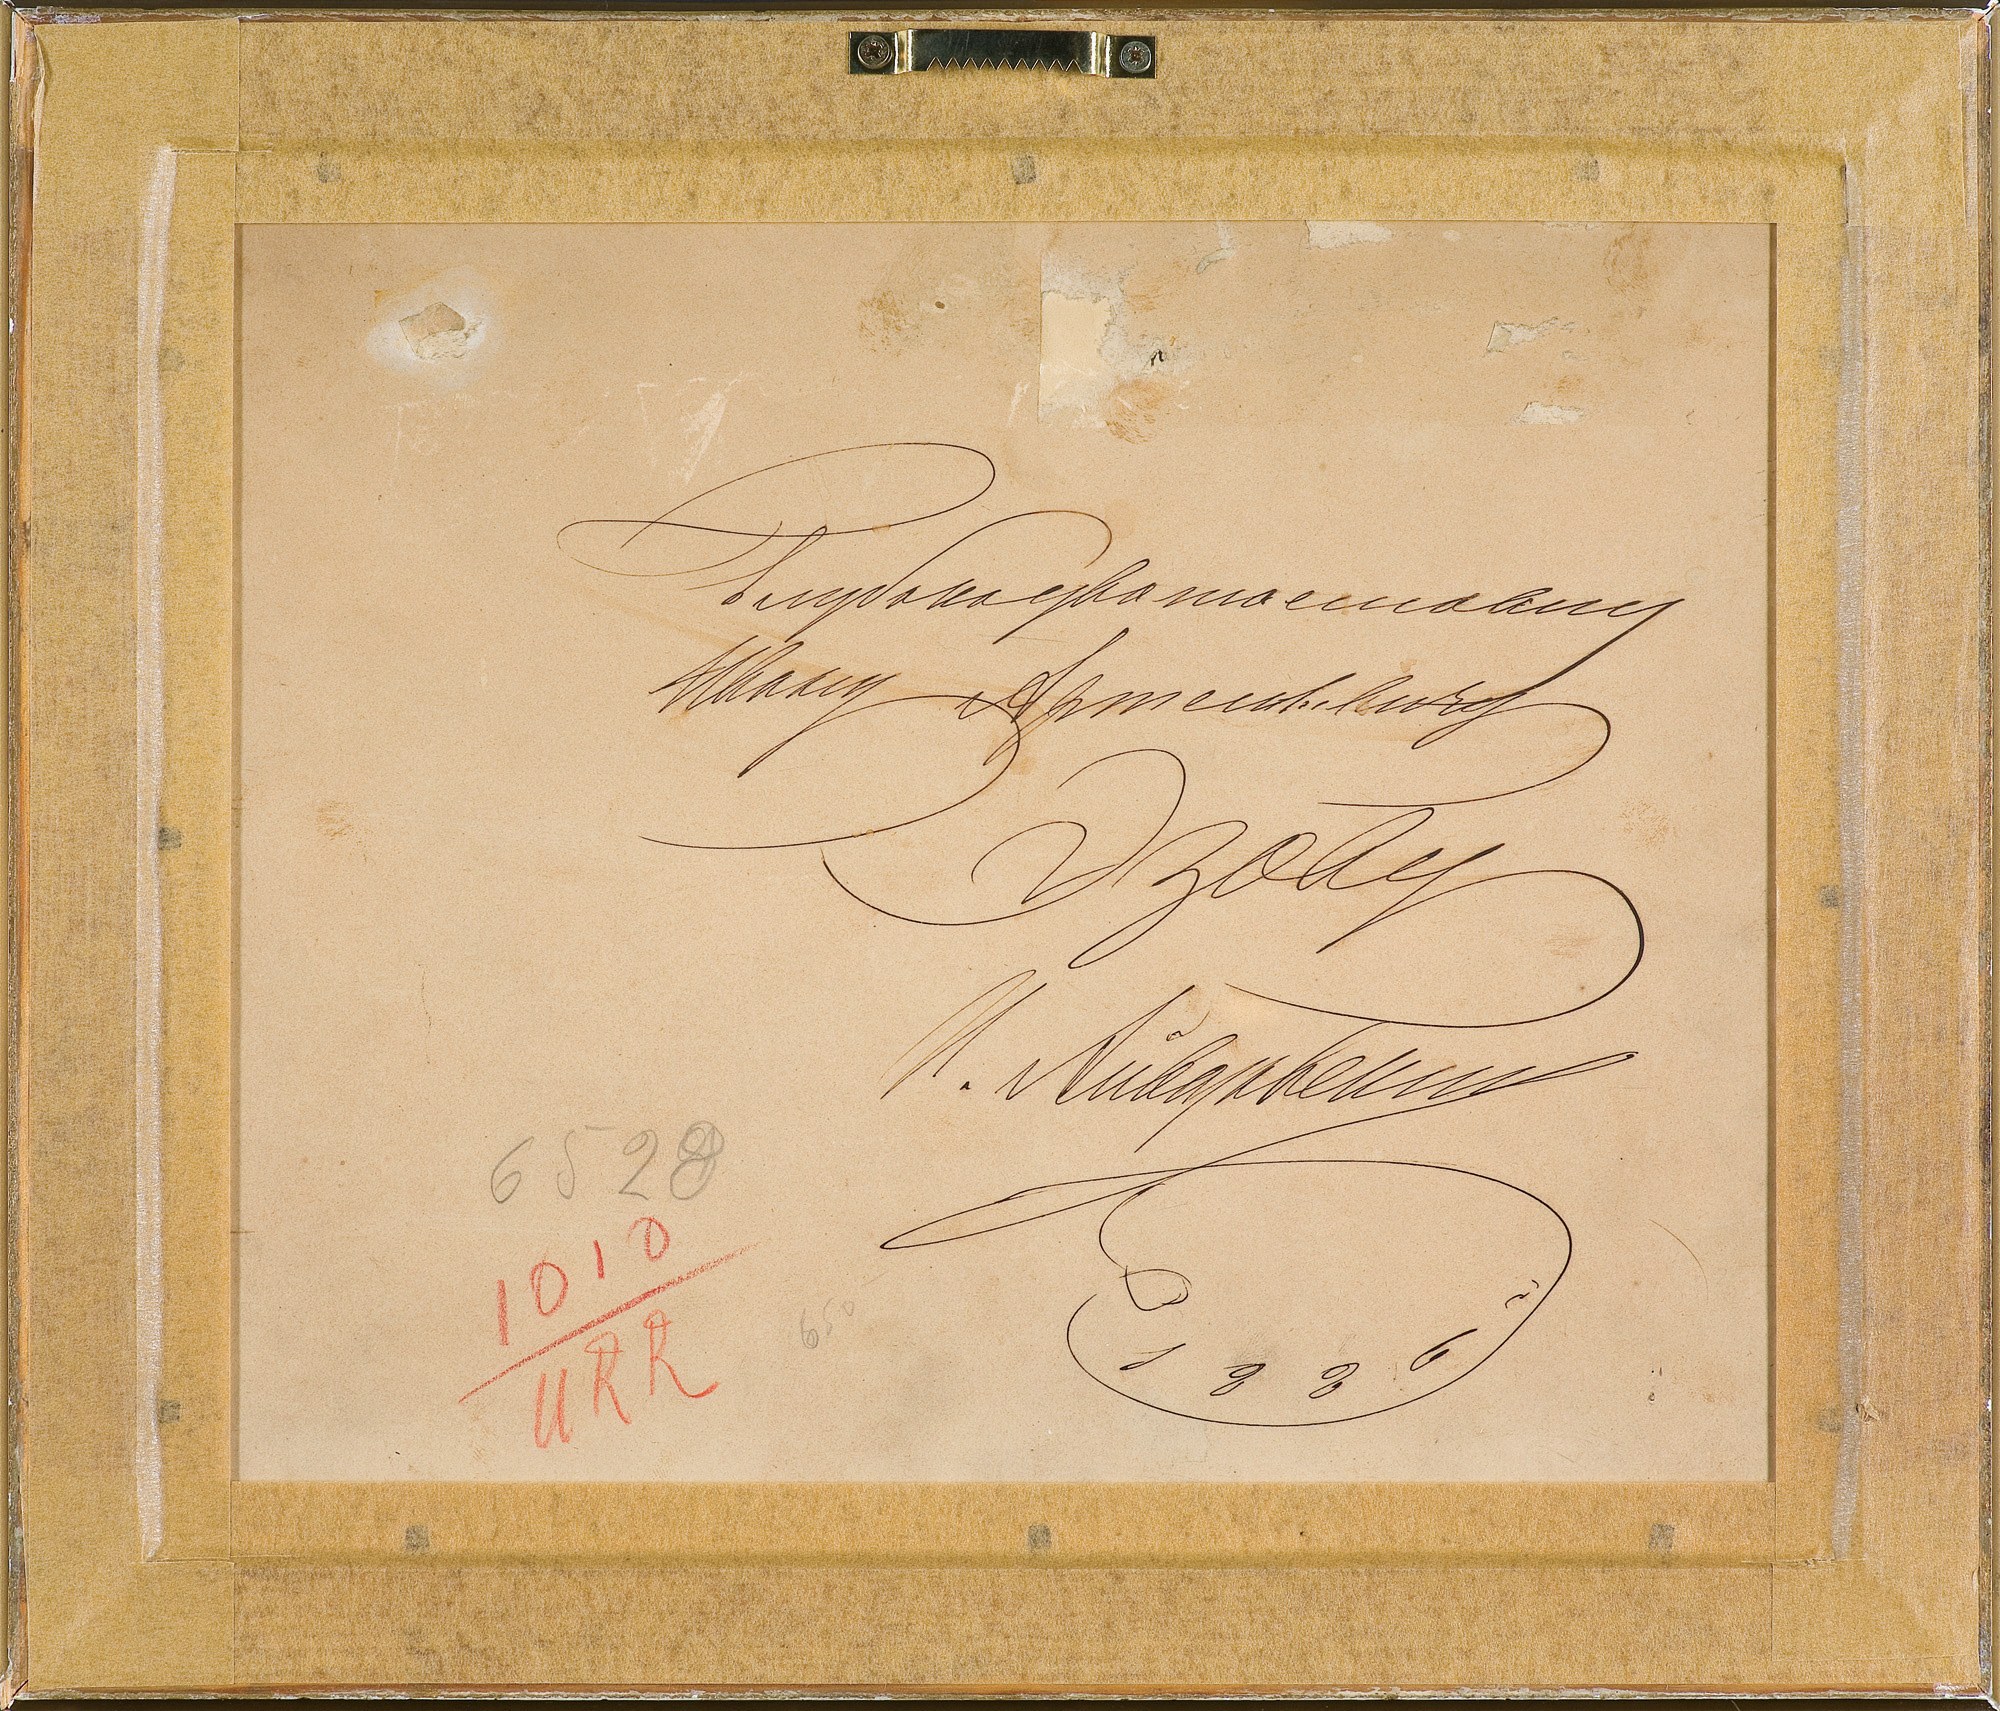 Глубокоуважаемому
Ивану Артемьевичу
Эзову
И. Айвазовский
1886
6528
1010
URR
650